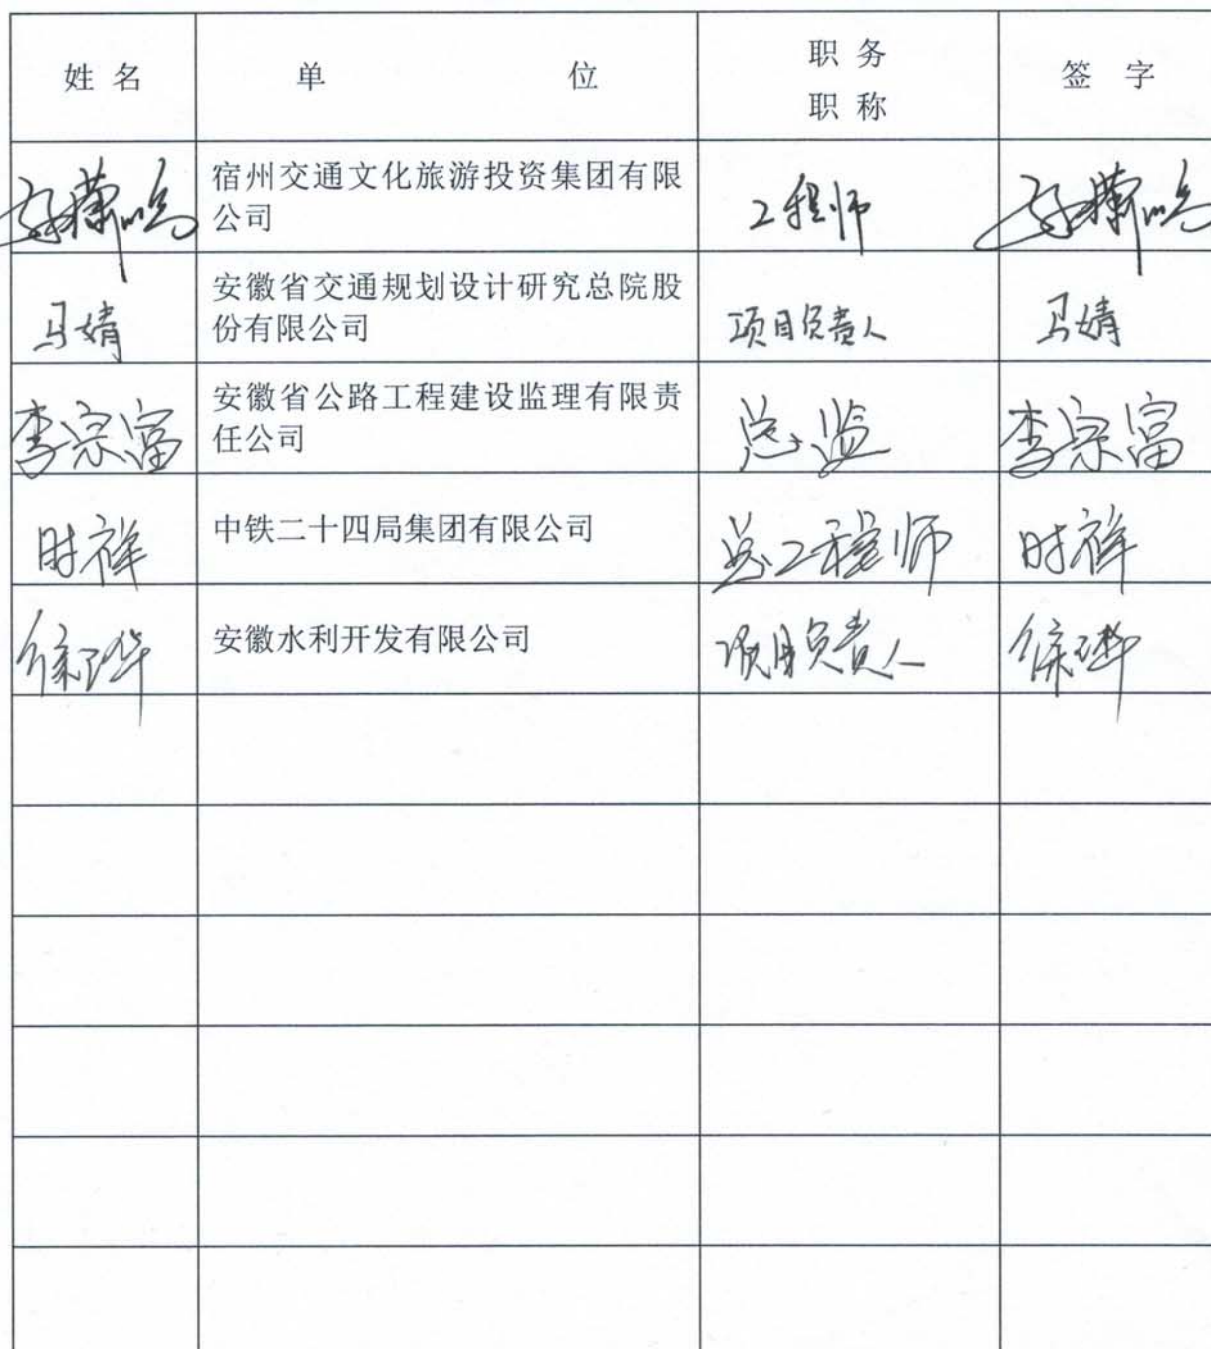 姓 名 单 位 职 务 签 字
职 称
宿州交通文化旅游投资集团有限
公司
工程师
马婧
安徽省交通规划设计研究总院股
份有限公司
项目负责人
马婧
李宗富
安徽省公路工程建设监理有限责
任公司
总监
李宗富
时祥
中铁二十四局集团有限公司
总工程师
时祥
安徽水利开发有限公司
项目负责人